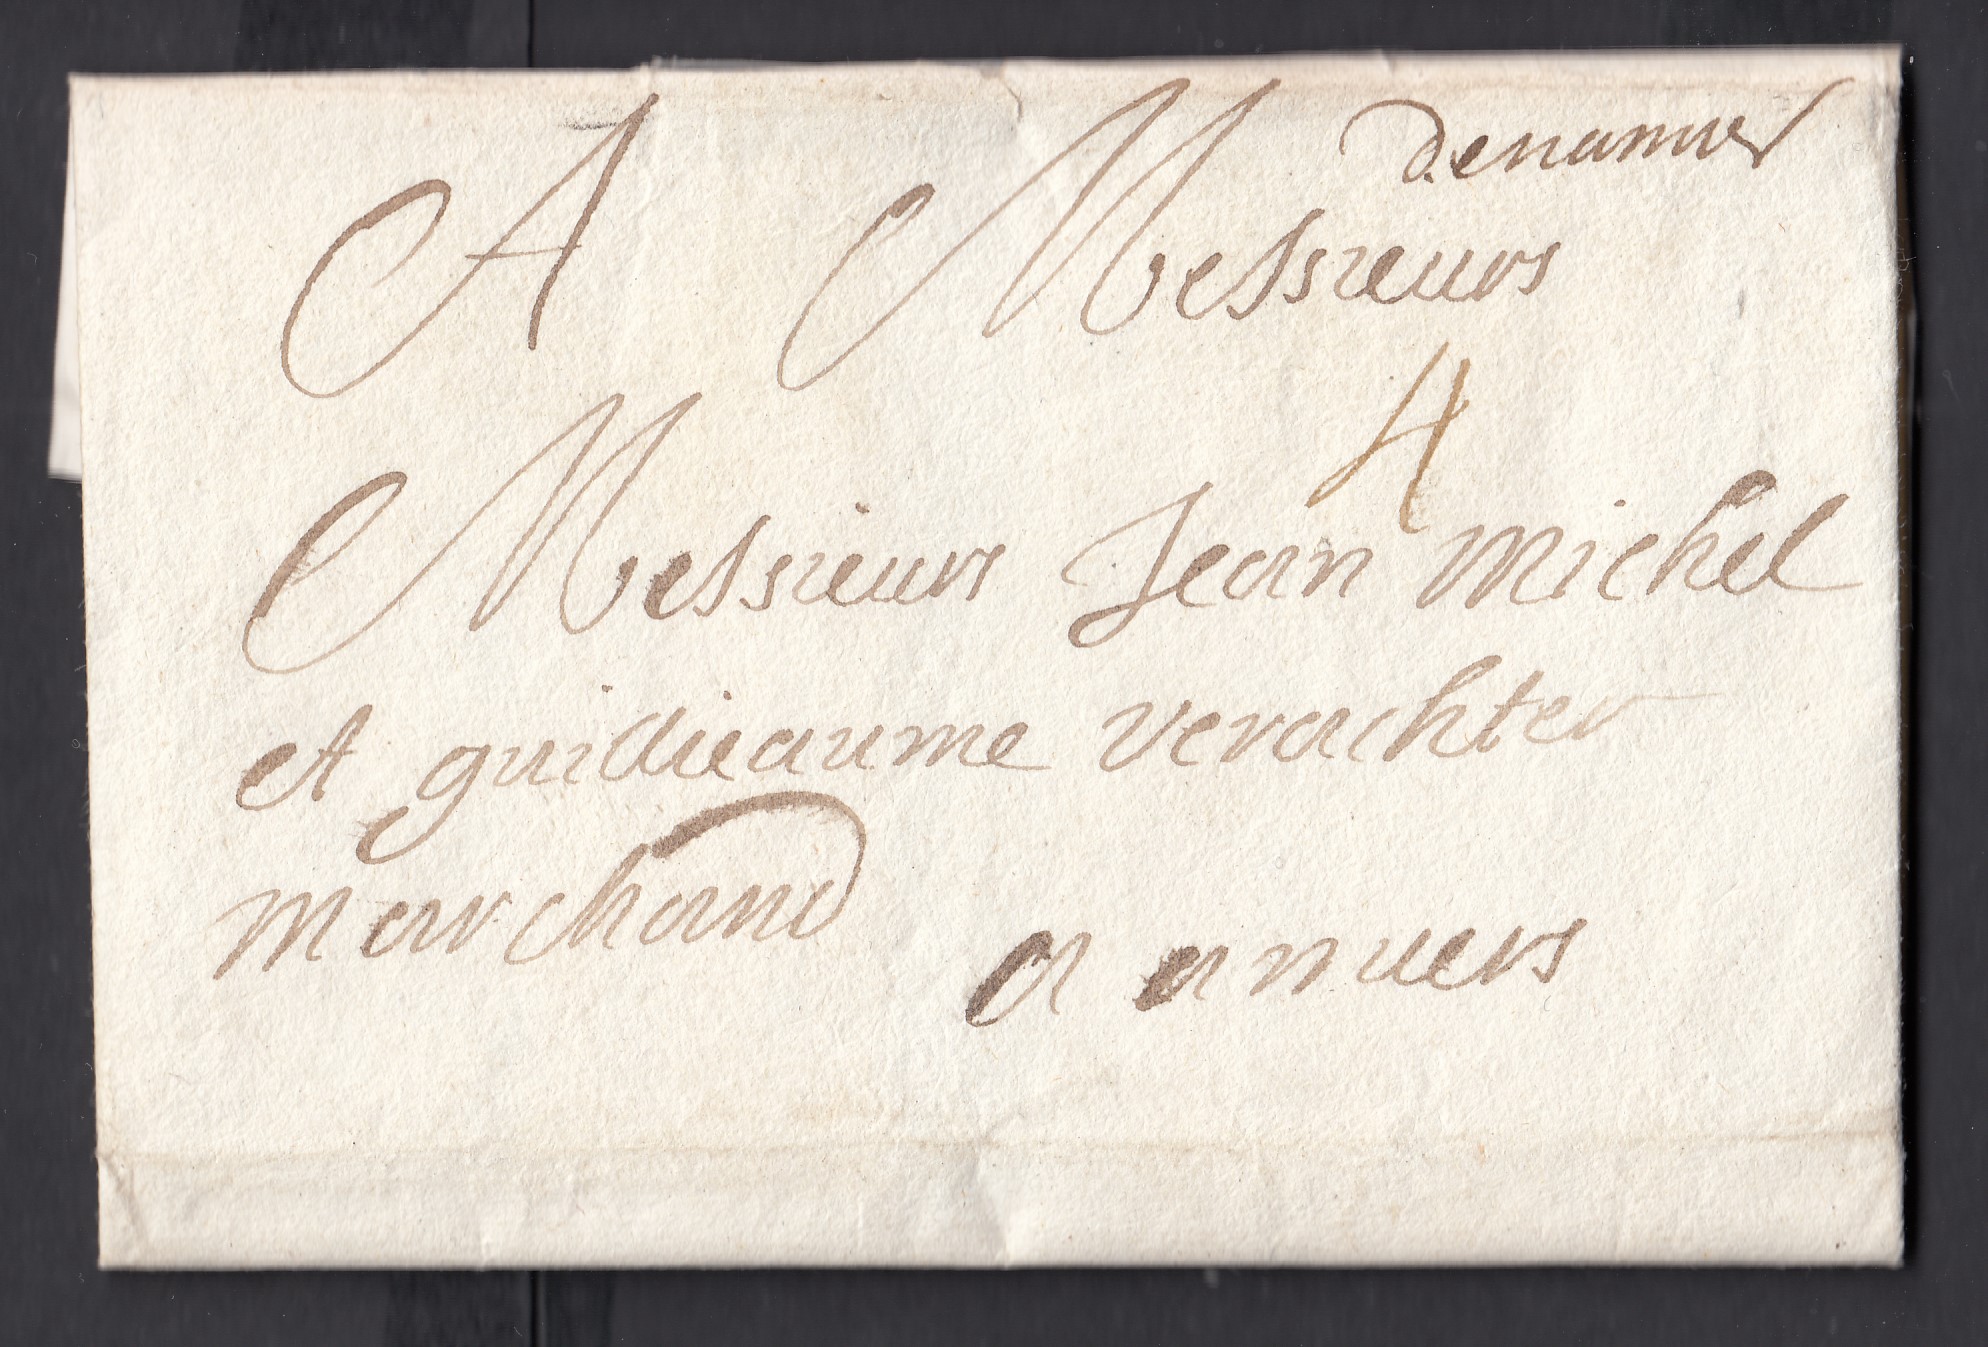 denamur
A Messieurs
4
Messieurs Jean Michel
et guillieaume verachter
marchand
a anuers